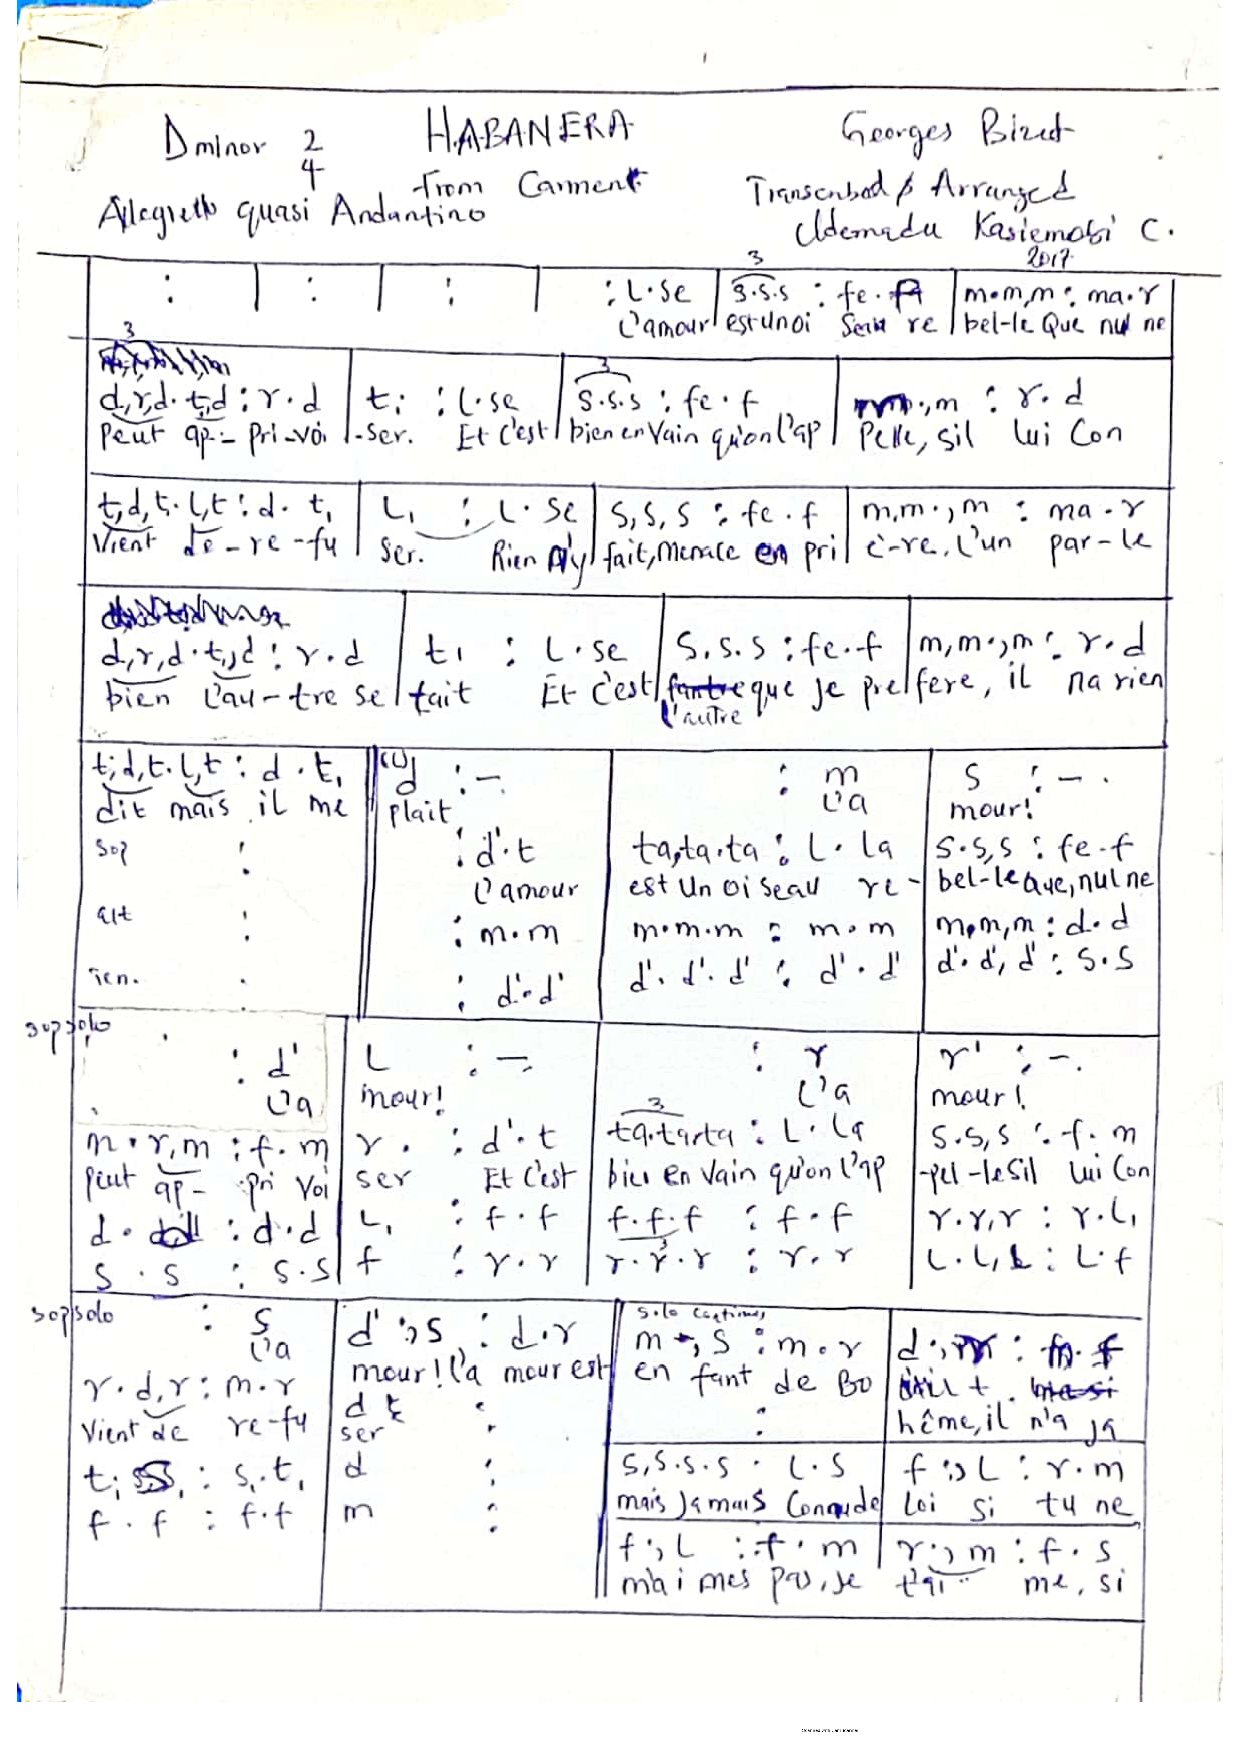 HABANERA
Georges Bizet
D minor 2/4
from Carment
Transcribed & Arranged
Allegretto quasi Andantino
Udemadu Kasiemobi C.
2017
: | : | : | : l.se | s.s.s : fe.f | m.m,m : ma.r
L'amour est un oi seau re bel-le Que nul ne
d,r,d.t,d : r.d | t, : l.se | s.s.s : fe.f | m.,m : r.d
Peut ap- pri-voi -ser. Et c'est bien en vain qu'on l'ap pelle, sil lui Con
t,d,t.l,t : d.t, | l, : l.se | s,s,s : fe.f | m,m.,m : ma.r
Vient de-re-fu ser. Rien n'y fait, menace en pri è-re, l'un par-le
d,r,d.t,d : r.d | t, : l.se | s.s.s : fe.f | m,m.,m : r.d
bien l'au-tre se tait Et c'est que je pre fere, il na rien
l'autre
t,d,t.l,t : d.t, | d :- | : m | s :-.
dit mais il me plait L'a mour!
Sop : | : d'.t | ta,ta.ta : l.la | s.s,s : fe.f
L'amour est un oiseau re- bel-le que, nul ne
alt : | : m.m | m.m.m : m.m | m.m,m : d.d
Ten. : | : d'.d' | d'.d'.d' : d'.d' | d'.d',d' : s.s
sop solo
: d' | l :- | : r | r' :-.
L'a mour! L'a mour!
m.r,m : f.m | r. : d'.t | ta.ta.ta : l.la | s.s,s : f.m
peut ap- pri voi ser Et c'est bien en vain qu'on l'ap -pel-le sil lui Con
d. : d.d | l, : f.f | f.f.f : f.f | r.r,r : r.l,
s.s : s.s | f : r.r | r.r.r : r.r | l.l,l : l.f
sop solo
solo continues
: s | d' :,s : d.r | m.,s : m.r | d.,
L'a mour! l'a mour est en fant de Bo
hême, il n'a ja
r.d,r : m.r | d :
Vient de re-fu ser
t, : s,.t, | d : | s,s.s.s : l.s | f :,l : r.m
mais jamais Connude Loi si tu ne
f.f : f.f | m : | f :,l : f.m | r :,m : f.s
m'ai mes pas, je t'ai me, si